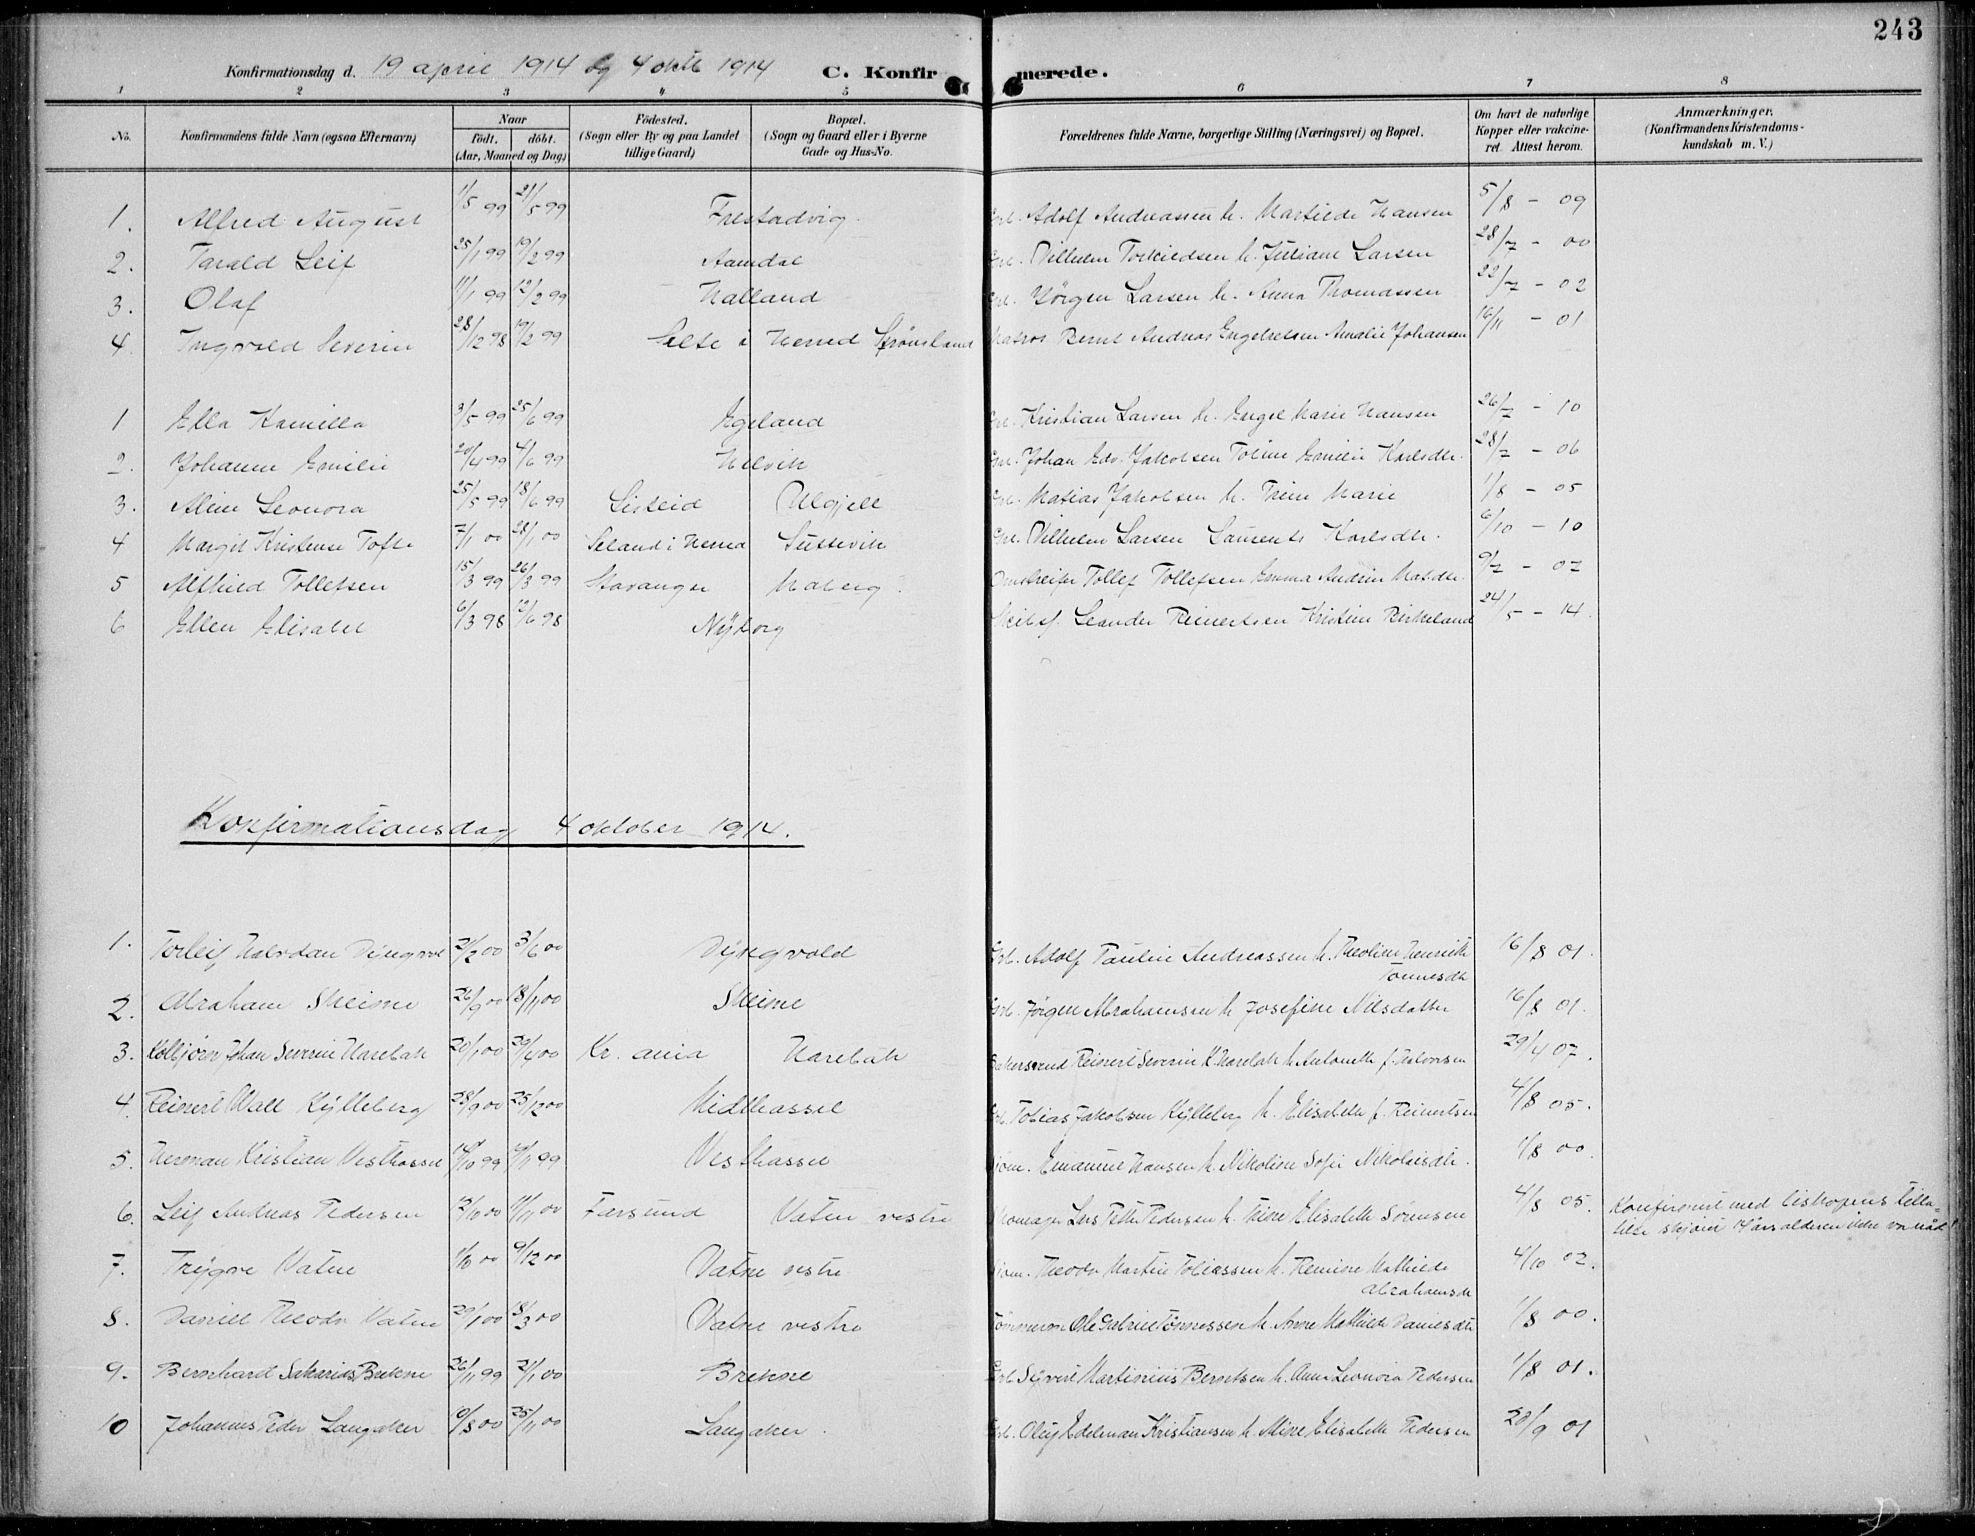 243
Konfirmationsdag d. 19 april 1914 og 4 oktb 1914 C. Konfirmerede.
1 2 3 4 5 6 7 8
No. Konfirmandens fulde Navn (ogsaa Efternavn) Naar födt. döbt. (Aar, Maaned og Dag) Födested. (Sogn eller By og paa Landet tillige Gaard) Bopæl. (Sogn og Gaard eller i Byerne Gade og Hus-No. Forældrenes fulde Navne, borgerlige Stilling (Næringsvei) og Bopæl. Om havt de naturlige Kopper eller vakcineret. Attest herom. Anmærkninger. (Konfirmandens Kristendomskundskab m. V.)
1. Alfred August 1/5 99 21/5 99 Frestadvig Adolf Andreassen h. Martilde Hansen 5/8 - 09
2. Tarald Leif 25/1 99 19/2 99 Aamdal Vilhelm Torkildsen h. Juliane Larsen 28/7 - 00
3. Olaf 11/1 99 12/2 99 Halland Jörgen Larsen h. Anna Thomassen 22/7 - 02
4. Ingvald Severin 28/12 98 19/2 99 i Herred Matros Bernt Andreas Engelretsen Amalie Johansen 16/11 - 01
1 Ella Kamilla 3/5 99 25/6 99 Egeland Kristian Larsen h. Engel Marie Hansen 26/7 - 10
2. Johanne Emilie 20/4 99 4/6 99 Helvik Johan Edv. Jakobsen Toline Emilie Karlsdtr. 28/7 - 06
3. Aline Leonora 25/5 99 18/6 99 Ulgjell Matias Jakobsen h. Trine Marie 1/8 - 05
4 Margit Kristense Tofte 7/1 00 28/1 00 i Herred Vilhelm Larsen Laurents Karlsdtr. 6/10 - 10
5 Alfhild Tollefsen 15/3 99 26/3 99 Stavanger Haberg Tollef Tollefsen Emma Andrine 9/7 - 07
6 Ellen Elisabet 6/3 98 12/6 98 Nyborg Leander Reinertsen Kristine Birkeland 24/5 - 14.
Konfirmationsdag 4 oktober 1914.
1. Torleif Halvdan Dyngvol 21/2 00 3/6 00 Dyngvold Grb. Adolf Pauline Andreassen h. Theoline Henriette
Tönnesdtr
2. Abraham Skeime 26/9 00 18/11 00 Skeime Grb. Jørgen Abrahamsen h. Josefine Nilsdatter 16/8 01.
3. Kolbjørn Johan Severin Harebak 20/1 00 29/4 00 Kr. ania Harebak Reinert Severin K. Harebak h. Antonette f. Halvorsen 29/4 07.
4. Reinert Wall Kylleberg 28/9 00 25/12 00 Midthassel Grb. Tobias Jakobsen Kylleberg h. Elisabeth f. Reinertsen 4/8 05.
5. Herman Kristian Vesthassel 14/10 99 99 Vesthassel Emanuel Hansen h. Nikoline Sofie Nikolaisdtr. 1/8 00.
6. Leif Andreas Pedersen 00 11/11 00 Farsund Vatne vestre Skomager Lars Peder Pedersen h. Trine Elisabeth Sørensen 4/8 05. Konfirmeret med biskopens tilla-
telse skjønt 14 aars alderen ikke var nåd!
7. Trygve Vatne 1/10 00 9/12 00 Vatne vestre Theodor Martin Tobiassen h. Remine Mathilde 4/10 02.
Abrahamsdtr
8. Daniel Theodor Vatne 29/1 00 18/3 00 Vatne vestre Tømmerm Ole Gabriel Tønnessen h. Anne Mathilde Danielsdtr 1/8 00.
9. Bernhard Sakarias Brekne 26/11 99 21/1 00 Brekne Grb Syvert Martinius Berntsen h. Anna Leonora Pedersen 1/8 01.
10 Johannes Peder Langaker 10/8 00 25/11 00 Langaker Grb. Oluf Edelman Kristiansen h. Mine Elisabeth Pedersen 28/9 01